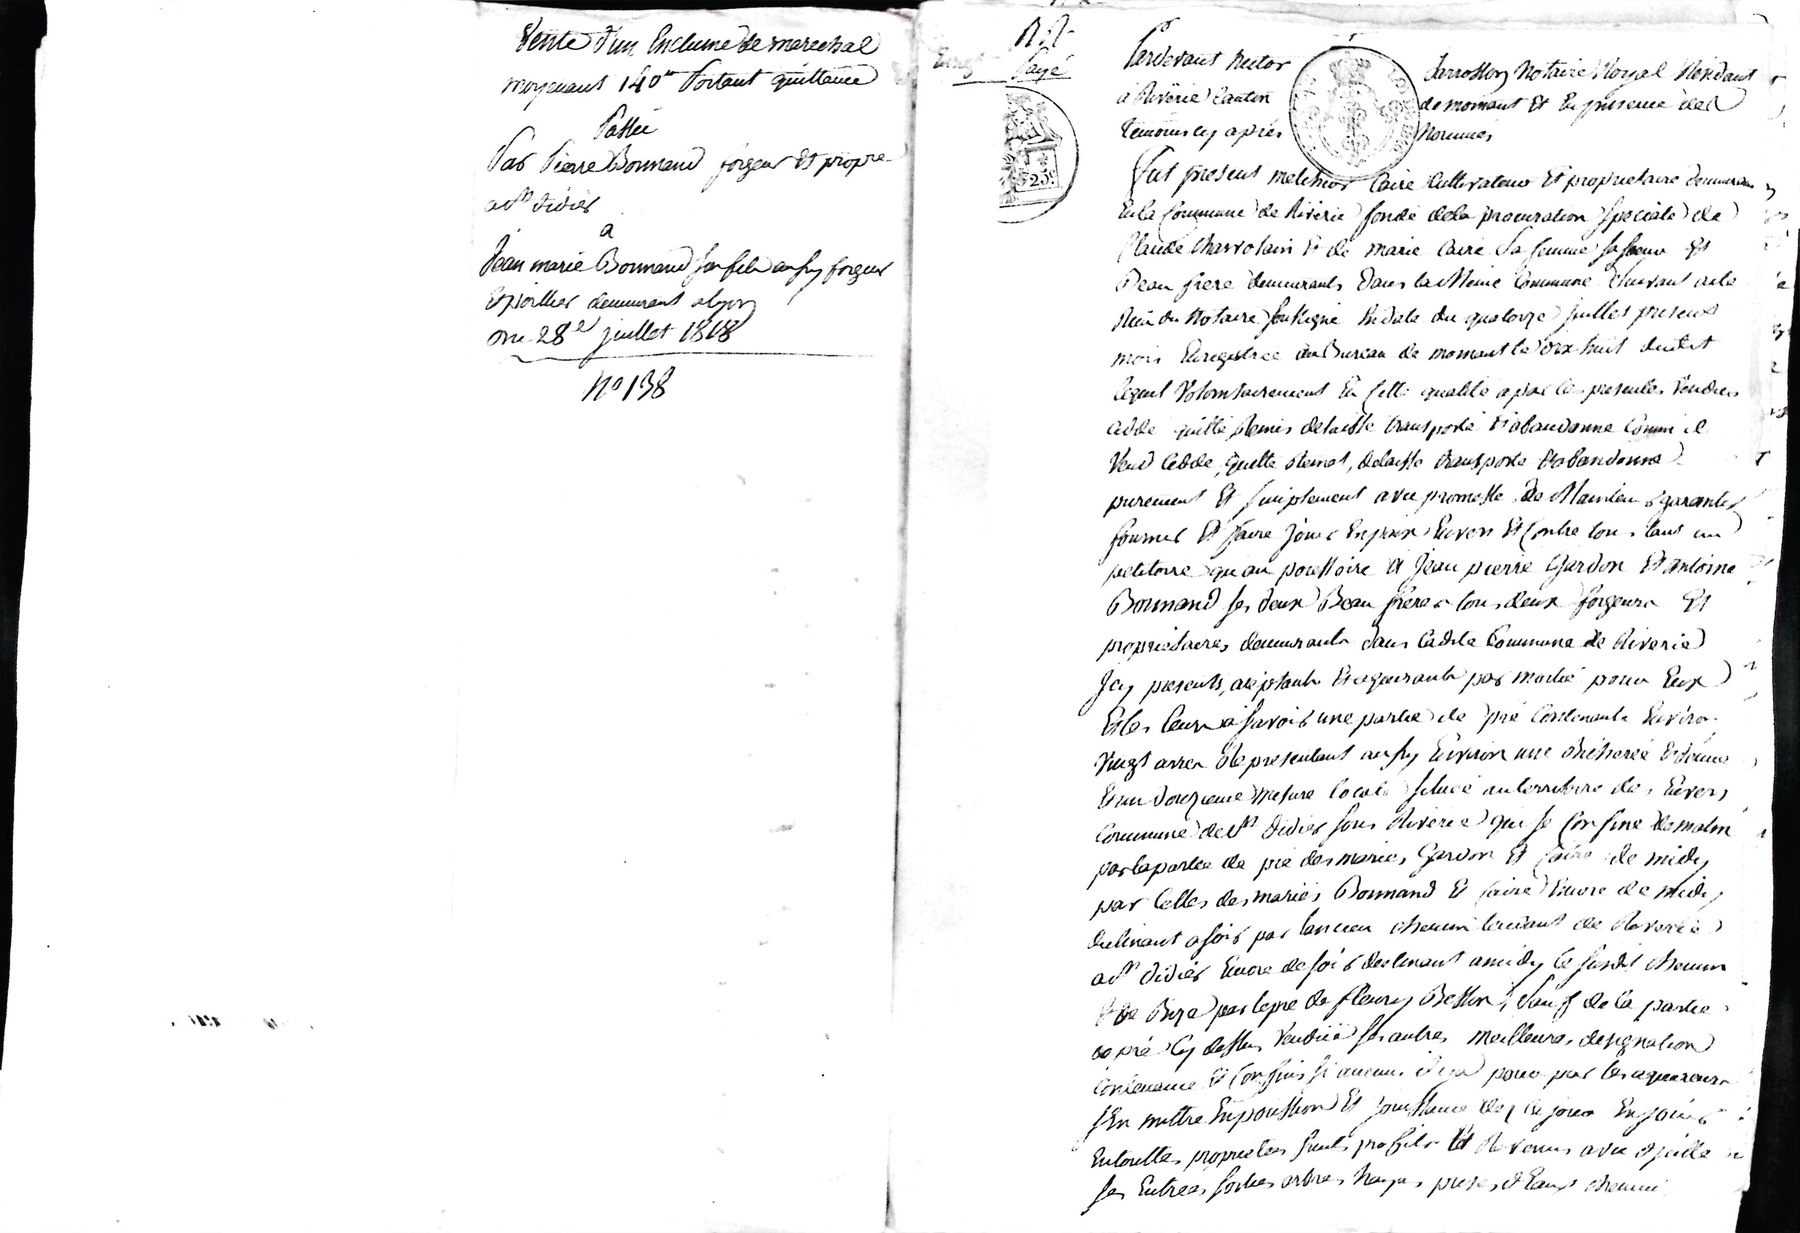 Vente d'un Enclume de marechal
moyenant 140 Portant quittance
Passée
Par Pierre Bonnand forgeur Et propre
a St Didier
a
Jean marie Bonnand son fils aussy forgeur
demeurant a Lyon
Du 28 juillet 1818
No 138
Payé
25c
Pardevant Hector Jarrosson Notaire Royal Résidant
à Riverie Canton de mornant Et En presence des
temoins cy après Nommés
Fut present melchior Caire Cultivateur Et proprietaire demeurant
En la Commune de Riverie fondé de la procuration speciale de
Claude Charrotain Et de marie Caire sa femme sa soeur Et
Beau frere demeurants dans la Meme Commune suivant acte
Reçu du Notaire soussigné En date du quatorze juillet present
mois Enregistrée au Bureau de mornant le dix huit dudit
Lequel Volontairement En cette qualité a par ces presentes Vendu
cédé quitté Remis delaissé transporté Et abandonné Comme il
Vend Cedde, quitte Remet, delaisse transporte Et abandonne
purement Et simplement avec promesse de Maintenir garantir
fournir Et faire jouir En paix Envers Et Contre tous tant au
petitoire qu'au possessoire A Jean pierre Gardon Et antoine
Bonnand ses deux Beau freres tous deux forgeurs Et
proprietaires demeurants dans Ladite Commune de Riverie
Icy presents, aceptants Et aquerants par moitié pour Eux
Et les leurs a savoir une partie de pré Contenant Environ
Vingt arres Representant aussy Environ une Bicherée Et demie
Et un douzieme mesure locale située au territoire des
Commune de St Didier sous Riverie qui se Confine de matin
par la partie de pré des mariés Gardon Et Caire de midy
par Celles des mariés Bonnand Et Caire Encore de midy
declinant a soir par lancien chemin tendant de Riverie
a St Didier Encore de soir declinant a midy le susdit chemin
Et de Bize par le pré de fleury Besson, sauf de la partie
de pré Cy dessus Vendue ses autres meilleures designation
Contenance Et Confins si aucuns il y a pour par les aquereurs
s'En mettre En possession Et jouissance dez ce jour En jouir
En touttes proprietés fruits profits Et Revenus avec
ses Entrées sorties arbres hayes prises d'Eaux chemin